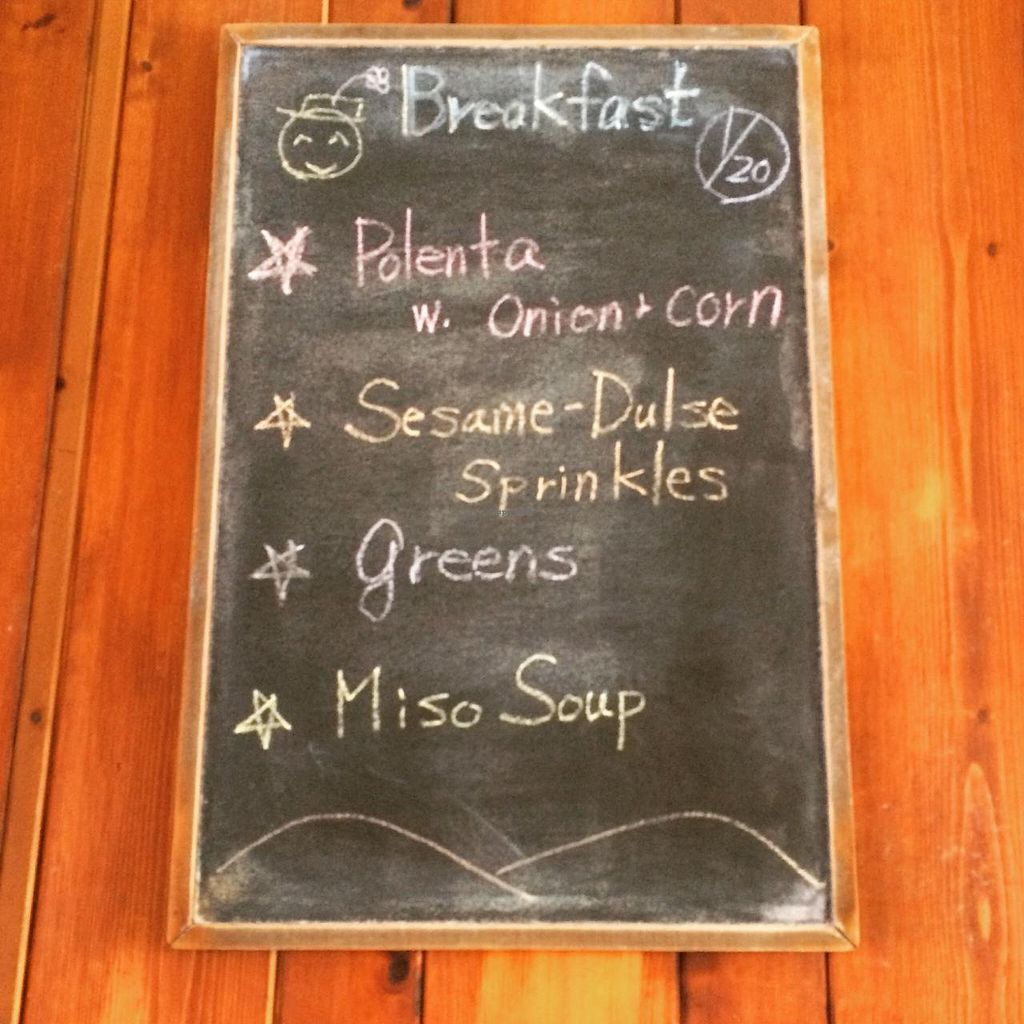 Breakfast
1/20
Polenta
w. Onion + Corn
Sesame-Dulse
Sprinkles
Greens
Miso Soup